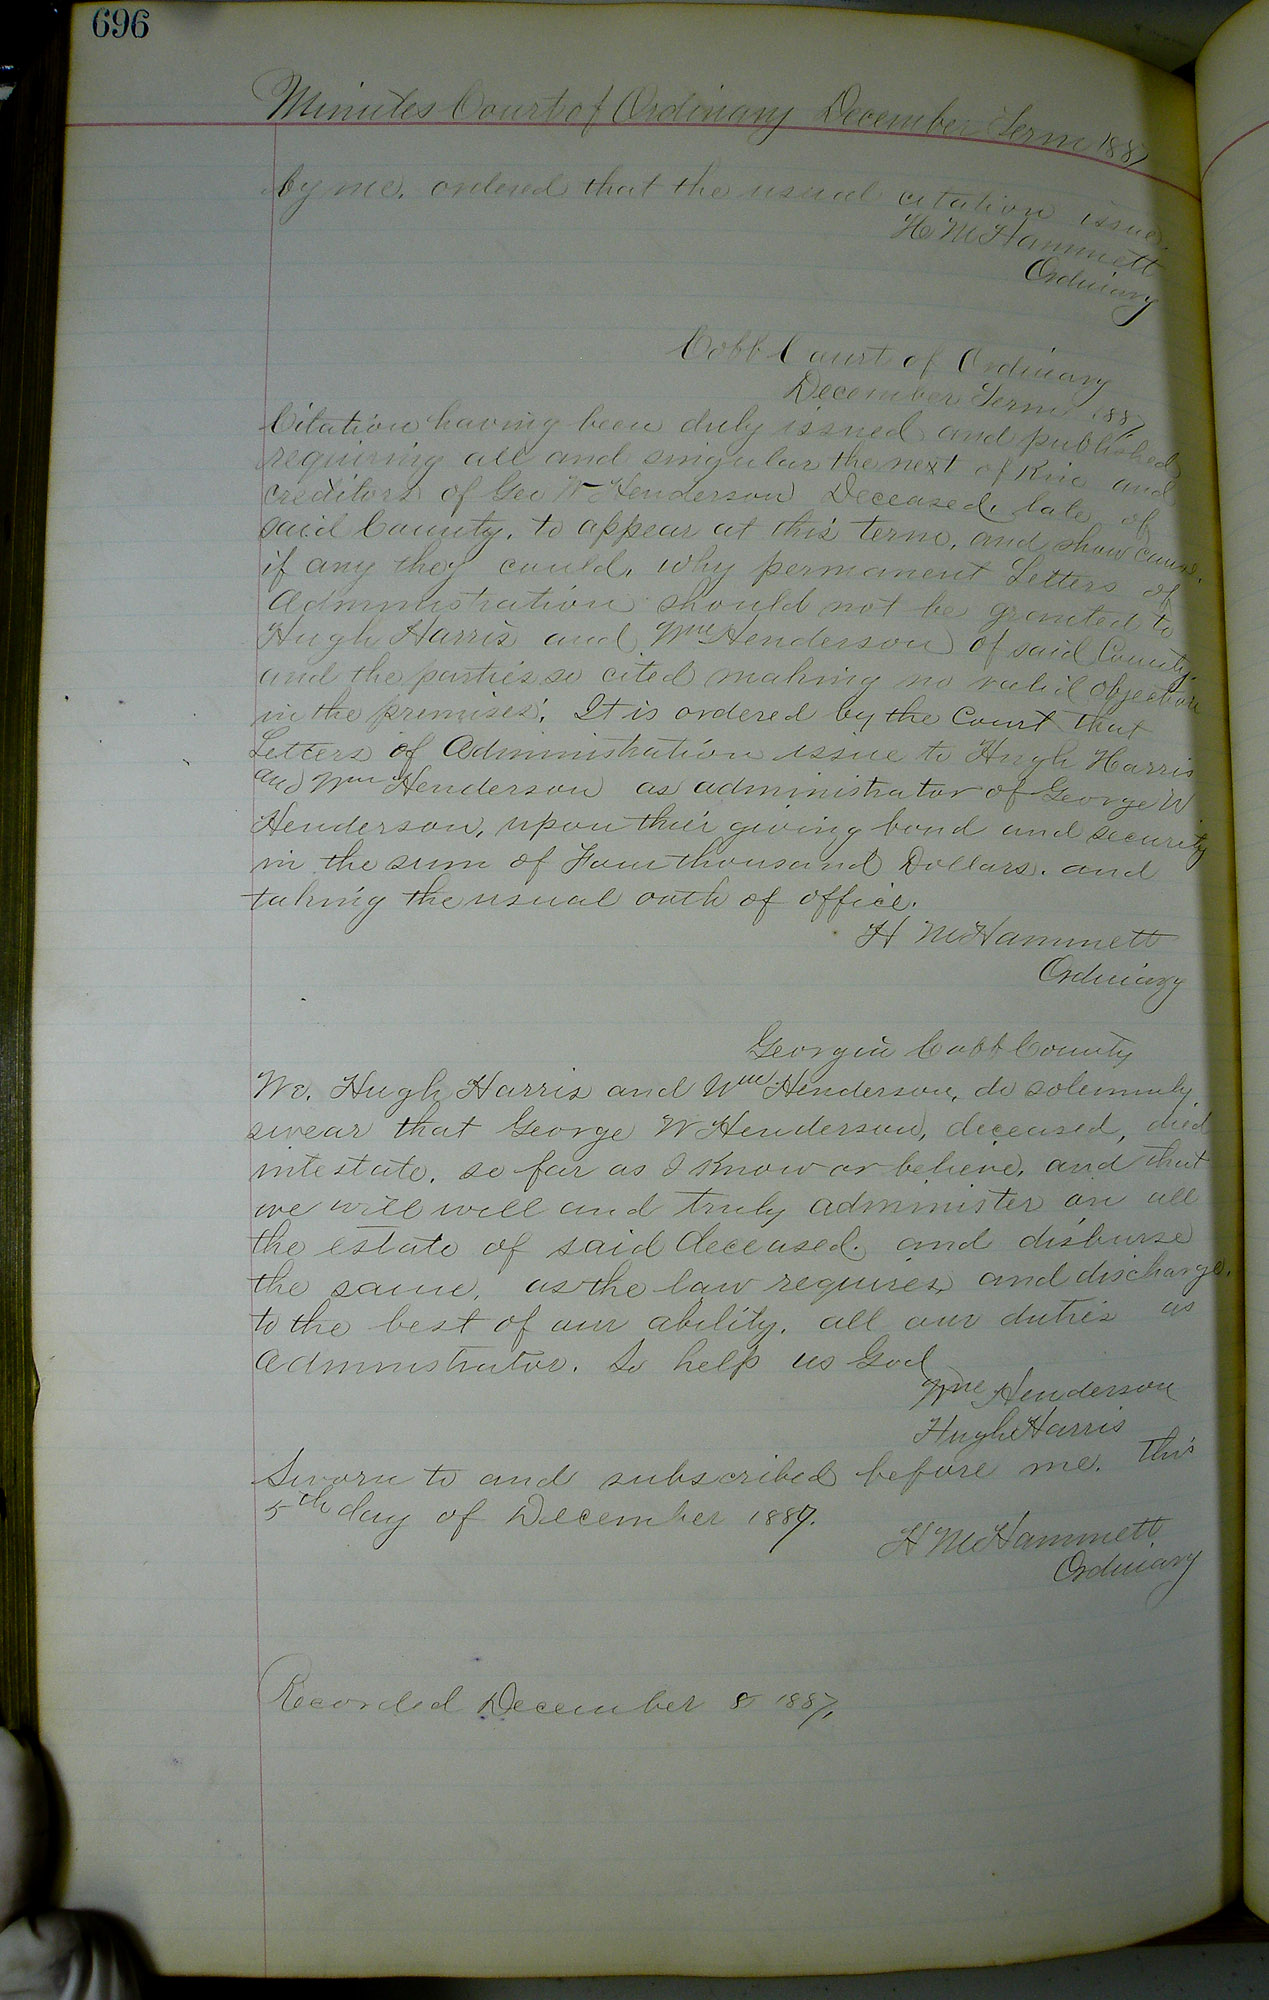 696
Minutes Court of Ordinary December Term 1887
by me. ordered that the usual citation issue.
H M Hammett
Ordinary
Cobb Court of Ordinary
December Term 1887
Citation having been duly issued and published
requiring all and singular the next of Kin and
creditors of Geo W Henderson Deceased, late of
said County, to appear at this term, and show cause,
if any they could, why permanent Letters of
Administration should not be granted to
Hugh Harris and Wm Henderson of said County,
and the parties so cited making no valid objection
in the premises. It is ordered by the Court that
Letters of Administration issue to Hugh Harris
and Wm Henderson as administrator of George W
Henderson, upon their giving bond and security
in the sum of Four thousand Dollars. and
taking the usual oath of office.
H M Hammett
Ordinary
Georgia Cobb County
We, Hugh Harris and Wm Henderson, do solemnly
swear that George W Henderson, deceased, died
intestate, so far as I know or believe, and that
we will well and truly administer on all
the estate of said deceased. and disburse
the same, as the law requires, and discharge,
to the best of our ability, all our duties as
Administrator. So help us God
Wm Henderson
Hugh Harris
Sworn to and subscribed before me. this
5th day of December 1887.
H M Hammett
Ordinary
Recorded December 8 1887,